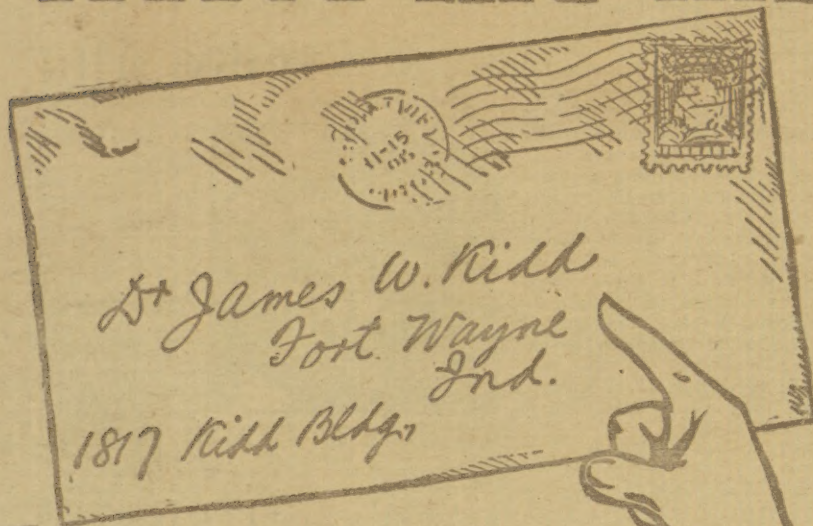 11-15
Dr James W. Kidd
Fort Wayne
Ind.
1817 Kidd Bldg.,